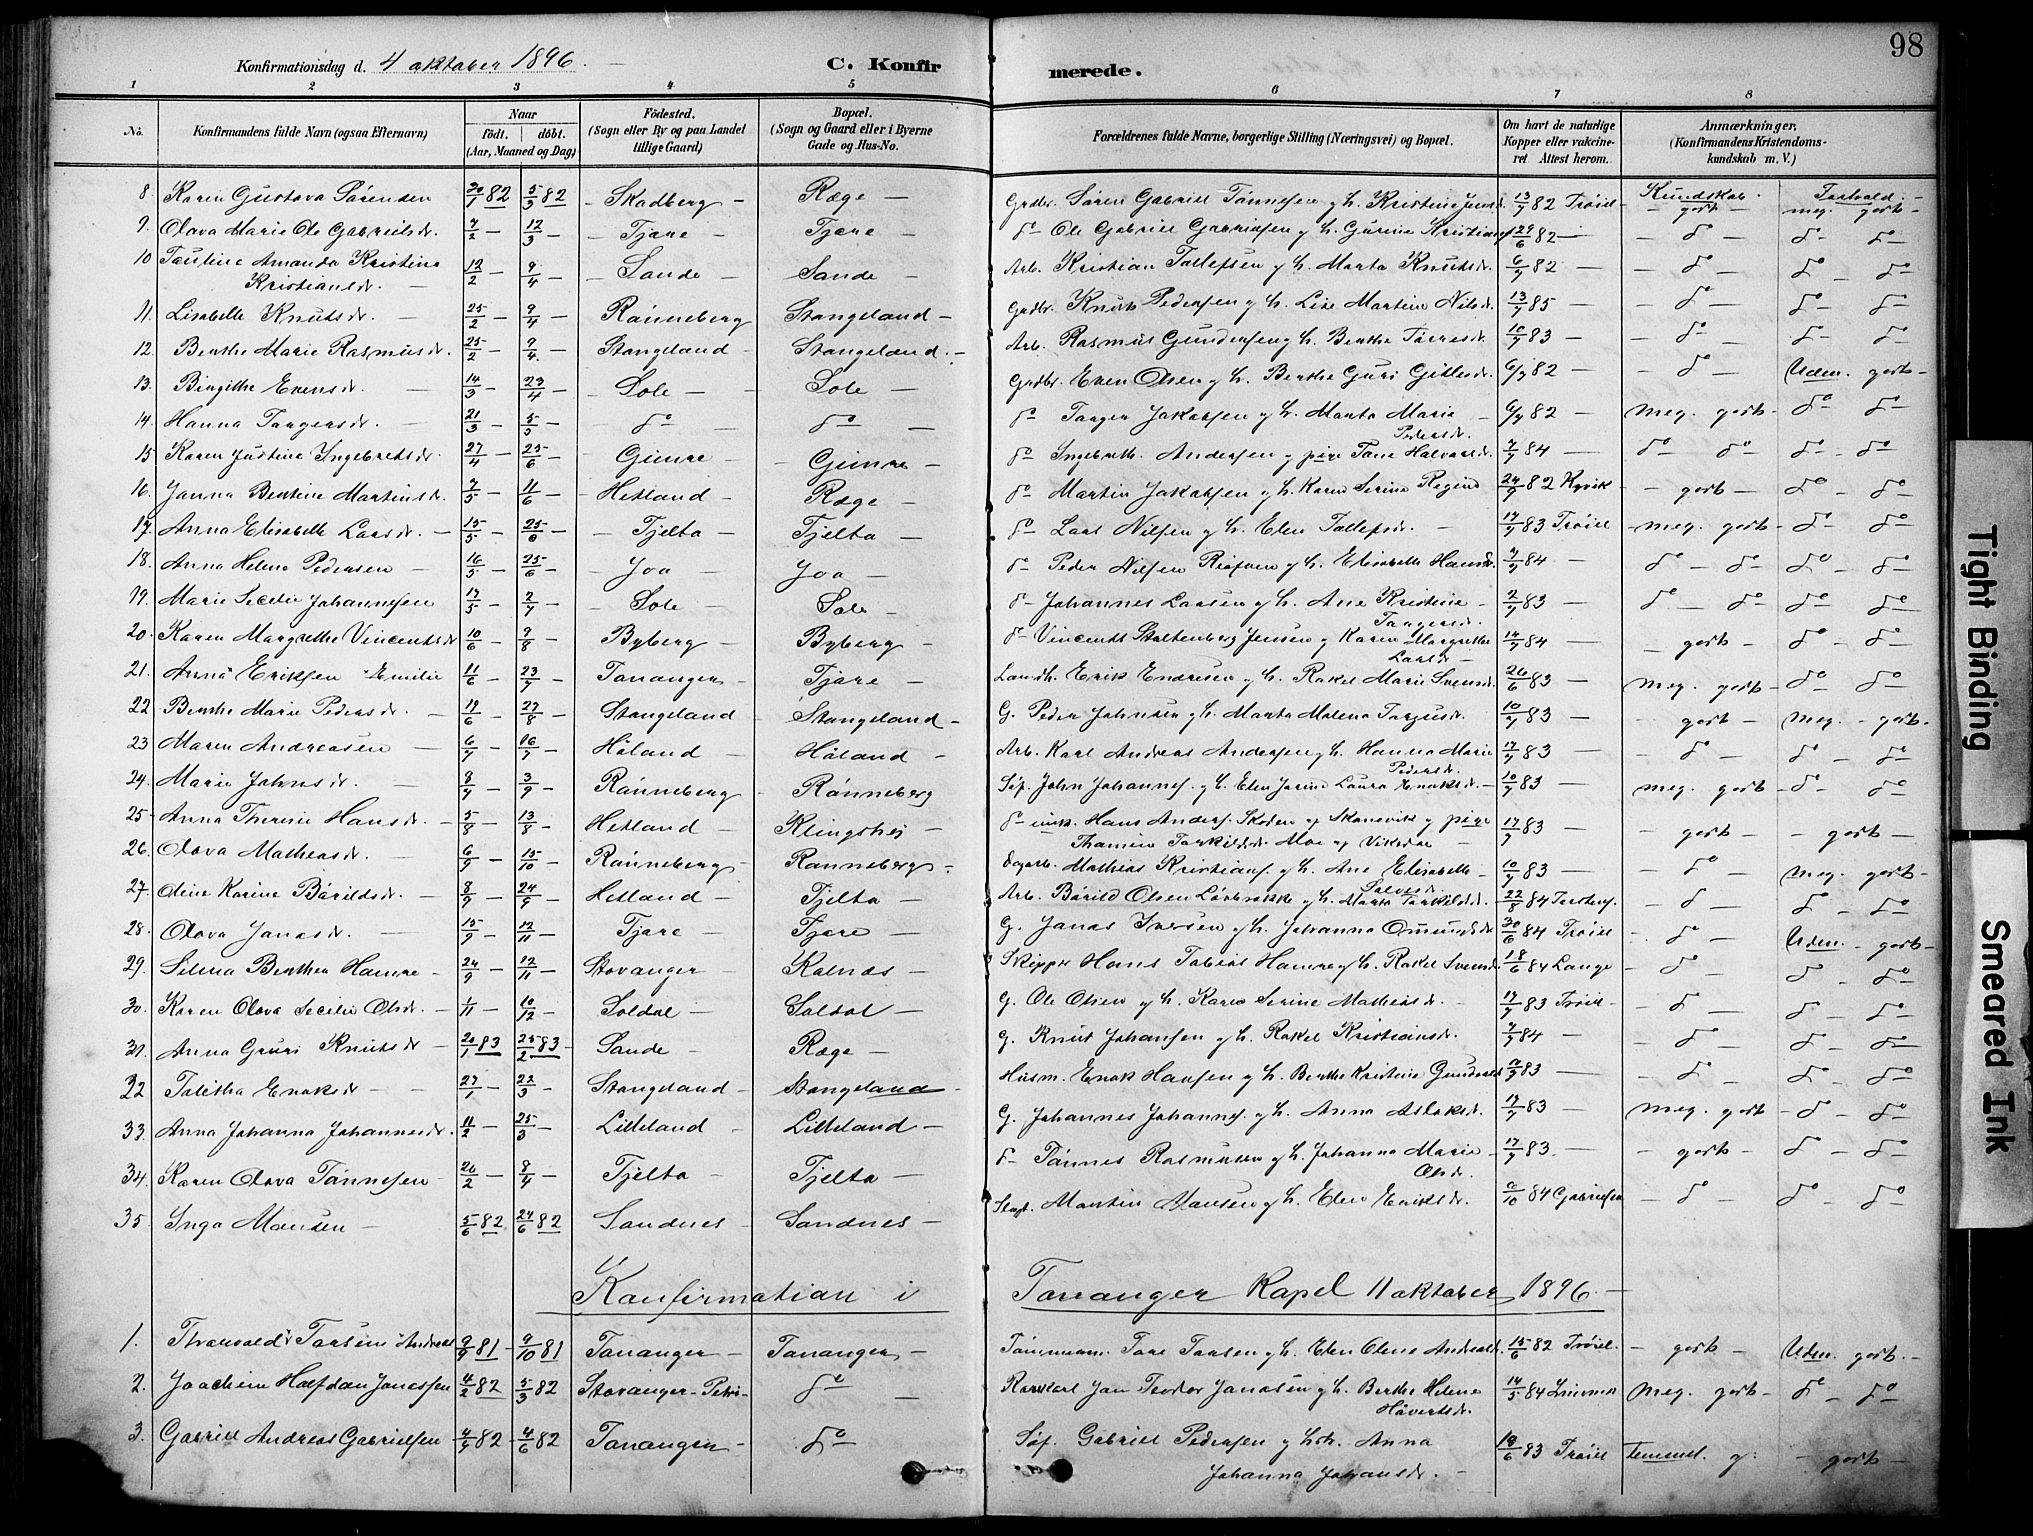 98
Konfirmationsdag d. 4 oktober 1896. C. Konfirmerede.
1 2 3 4 5 6 7 8
No. Konfirmandens fulde Navn (ogsaa Efternavn) Naar født. døbt. (Aar, Maaned og Dag) Fødested. (Sogn eller By og paa Landet tillige Gaard) Bopæl. (Sogn og Gaard eller i Byerne Gade og Hus-No. Forældrenes fulde Navne, borgerlige Stilling (Næringsvei) og Bopæl. Om havt de naturlige Kopper eller vaccineret Attest herom. Anmærkninger. (Konfirmandens Kristendomskundskab m. V.)
Kundskab. Forhold.
8. Karen Gustava Sørensen 20/1 82 5/3 82 Skadberg Ræge Grdbr. Søren Gabriel Tønnesen g h. Kristine Jensd. 13/7 82 Trøiel godt meg. godt
9. Olava Marie Ole Gabrielsdr. 7/2 12/3 Tjøre Tjøre do Ole Gabriel Gabrielsen g h. Gurine Kristians 29/6 82 do do do
10 Pauline Amanda Kristine Kristiansdr. 12/2 9/4 Sande Sande Arb. Kristian Tollefsen g h. Marta Knutsdr. 6/7 82 do do do
11. Lisabelle Knutsdr. 25/2 9/4 Rønneberg Stangeland Grdbr. Knut Pedersen g h. Lise Martine Nilsdr. 13/7 85 do do do
12. Berthe Marie Rasmusdr. 25/2 9/4 Stangeland Stangeland Arb. Rasmus Gundersen g h. Berthe Torresdr. 10/7 83 do do do
13. Birgithe Evensdr. 14/3 23/4 Sole Sole Grdbr. Even Olsen g h. Berthe Guri Gittlesdr. 6/7 82 do Uden. godt
14. Hanna Torgersdr. 21/3 5/5 do do do Torger Jakobsen g h. Marta Marie Pedersdr. 6/7 82 meg. godt do do
15 Karen Justine Ingebretsdr. 27/4 25/6 Gimre Gimre do Ingebreth. Andersen g pige Tone Halvorsdr. 7/7 84 do do do do
16. Janna Bertine Martinsdr. 7/5 11/6 Hetland Ræge do Martin Jakobsen g h. Karen Serine Regine 24/9 82 Kyvik godt do do
17. Anna Elisabelle Larsdr. 15/5 25/6 Tjelta Tjelta do Lars Nilsen g h. Elen Tollefsdr. 17/7 83 Trøiel meg. godt do do
18. Anna Helene Pedersen 16/5 25/6 Joa Joa do Peder Nilsen g h. Elisabelle Hansdr. 7/7 84 do do do do
19. Marie Secelie Johannesen 17/5 2/7 Sole Sole do Johannes Larsen g h. Ane Kristine Torgersdr. 2/7 83 do do do do
20. Karen Margrethe Vincentsdr 10/6 9/8 Byberg Byberg do Vincents Stoltenberg Jensen g Karen Margrethe Larsdr. 14/7 84 godt do do
21. Anna Eriksen Emilie 11/6 23/7 Tananger Tjøre Landh. Erik Endresen g h. Rakel Marie Svensdr. 26/6 83 meg. godt do do
22 Berthe Marie Pedersdr. 19/6 27/8 Stangeland Stangeland G. Peder Johnsen g h. Marta Malena Torgusdr. 10/7 83 godt meg. godt
23 Maren Andreasen 6/7 16/7 Håland Håland Arb. Karl Andreas Andersen g h. Hanna Marie Pedersdr. 17/7 83 do do do
24. Marie Johnsdr. 8/7 3/9 Rønneberg Rønneberg Søf. John Johannes. g h. Elen Jorine Laura Enoksdr. 10/7 83 meg. godt do do
25 Anna Theresie Hansdr. 5/8 13/8 Hetland Klingshej do enk. Hans Anders. Skoden af Skonevik g pige Thamine Torkildsdr. Moe af Vikedal 17/7 83 godt godt
26. Olava Mathiasdr. 6/9 15/10 Rønneberg Rønneberg Dagarb. Mathias Kristians. g h. Ane Elisabelle Salvesdr. 10/7 83 do meg. godt
27. Oline Karine Bårildsdr. 8/9 24/9 Hetland Tjelta Arb. Bårild Olsen g h. Marta Torkildsdr. 22/8 84 do do do
28. Olava Jonasdr. 15/9 12/11 Tjøre Tjøre G. Jonas Iversen g h. Johanna Omundsdr 30/6 84 Trøiel do Uden. godt
29. Selma Berthea Hamre 24/9 12/11 Stavanger Kolnes Skipper Hans Tobias Hamre g h. Rakel Svensd. 18/6 84 Lange do do do
30. Karen Olava Secelie Olsdr. 1/11 10/12 Soldal Soldal G. Ole Olsen g h. Karen Serine Mathiasdr. 17/7 83 Trøiel do do do
31. Anna Guri Knutsdr 20/1 83 25/2 83 Sande Ræge G. Knut Johansen g h. Rakel Kristiansdr. 7/7 84 do do do
32 Talitha Enoksdr 27/1 22/3 Stangeland Stangeland Husm. Enok Hansen g h. Berthe Kristine Gundersdr 83 do do do
33. Anna Johanna Johannesdr. 11/2 25/3 Litleland Litleland G. Johannes Johannes. g h. Anna Aslaksdr. 17/7 83 meg. godt do do
34. Karen Olava Tønnesen 26/2 8/4 Tjelta Tjelta do Tønnes Rasmusen g h. Johanna Marie Olsdr. 17/7 83 godt do do
35. Inga Monsen 5/6 82 24/6 82 Sandnes Sandnes Martin Monsen g h. Elen Eriksdr. 84 Gabrielsen do do do
Konfirmation i Tananger Kapel 11 oktober 1896.
1. Thorvald Torsen Andreas 9/9 81 9/10 81 Tananger Tananger Tømmerm. Tore Torsen g h. Elen Olene Andreasd. 15/6 82 Trøiel godt Uden. godt
2. Joachim Halfdan Jonassen 4/2 82 5/3 82 Stavanger Petri do Jan Teodor Jonasen g h. Berthe Helene Håvertsdr. 14/5 84 meg. godt do do
3. Gabriel Andreas Gabrielsen 4/4 82 4/6 82 Tananger do Søf. Gabriel Pedersen g h. Anna Johanna Johansdr. 19/6 83 Trøiel Temmel. g. godt
Tight Binding
Smeared Ink